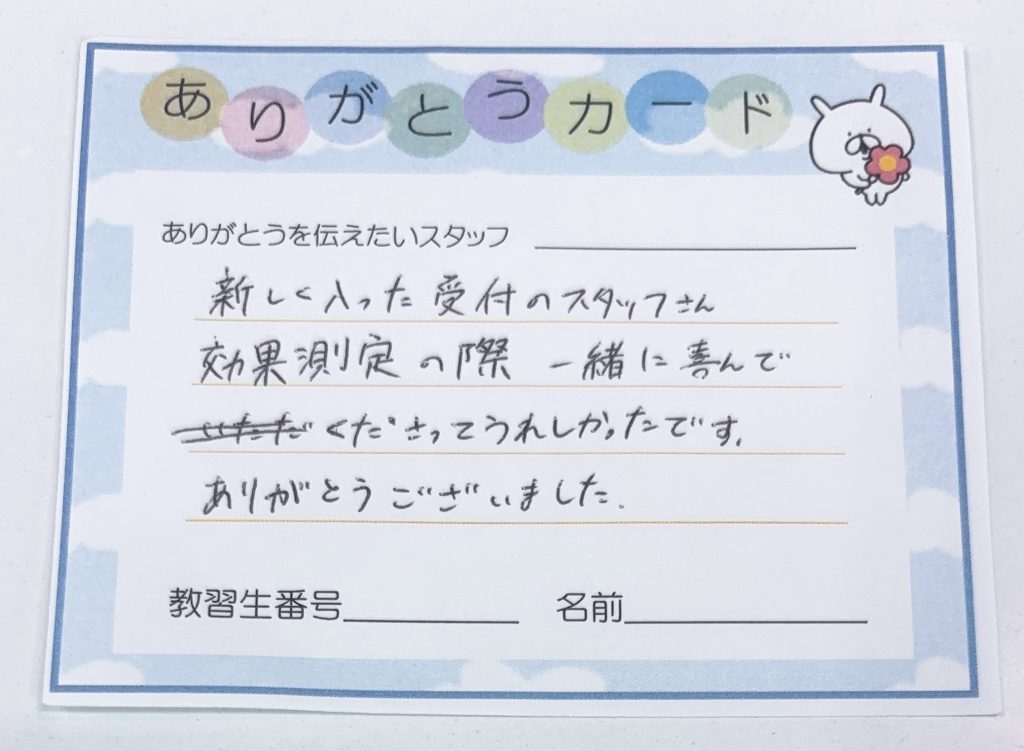 ありがとうカード
ありがとうを伝えたいスタッフ
新しく入った受付のスタッフさん
効果測定の際 一緒に喜んで
いただ くださってうれしかったです。
ありがとうございました.
教習生番号 名前